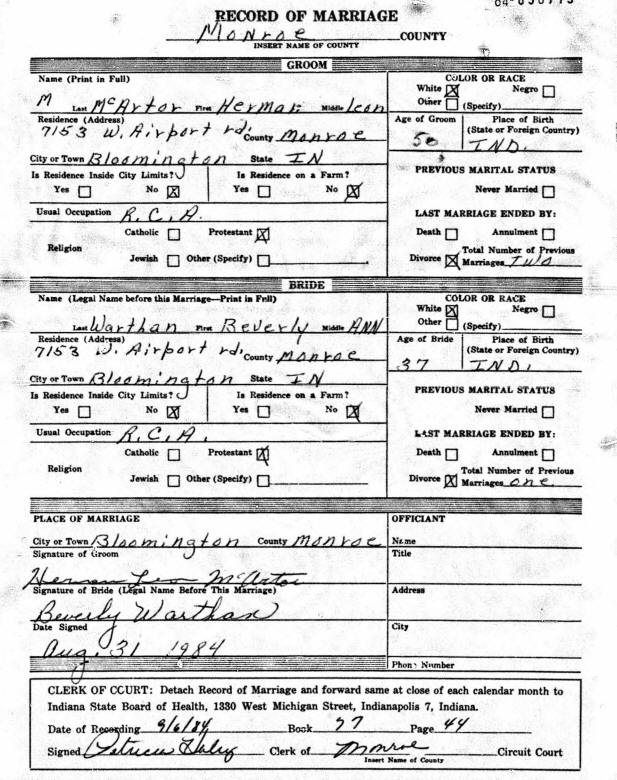 RECORD OF MARRIAGE
Monroe COUNTY
INSERT NAME OF COUNTY
GROOM
Name (Print in Full)
M Last McArtor First Herman Middle Leon
Residence (Address)
7153 W. Airport rd. County Monroe
City or Town Bloomington State IN
Is Residence Inside City Limits? Is Residence on a Farm?
Yes No X Yes No X
Usual Occupation R.C.A.
Religion
Catholic Protestant X
Jewish Other (Specify)
COLOR OR RACE
White X Negro
Other (Specify)
Age of Groom Place of Birth
(State or Foreign Country)
50 IND.
PREVIOUS MARITAL STATUS
Never Married
LAST MARRIAGE ENDED BY:
Death Annulment
Divorce X Total Number of Previous
Marriages Two
BRIDE
Name (Legal Name before this Marriage—Print in Full)
Last Warthan First Beverly Middle ANN
Residence (Address)
7153 W. Airport rd. County Monroe
City or Town Bloomington State IN
Is Residence Inside City Limits? Is Residence on a Farm?
Yes No X Yes No X
Usual Occupation R.C.A.
Religion
Catholic Protestant X
Jewish Other (Specify)
COLOR OR RACE
White X Negro
Other (Specify)
Age of Bride Place of Birth
(State or Foreign Country)
37 IND.
PREVIOUS MARITAL STATUS
Never Married
LAST MARRIAGE ENDED BY:
Death Annulment
Divorce X Total Number of Previous
Marriages one
PLACE OF MARRIAGE
City or Town Bloomington County Monroe
Signature of Groom
Herman Leon McArtor
Signature of Bride (Legal Name Before This Marriage)
Beverly Warthan
Date Signed
Aug. 31 1984
OFFICIANT
Name
Title
Address
City
Phone Number
CLERK OF COURT: Detach Record of Marriage and forward same at close of each calendar month to
Indiana State Board of Health, 1330 West Michigan Street, Indianapolis 7, Indiana.
Date of Recording 9/6/84 Book 97 Page 44
Signed Patricia Haley Clerk of Monroe Circuit Court
Insert Name of County